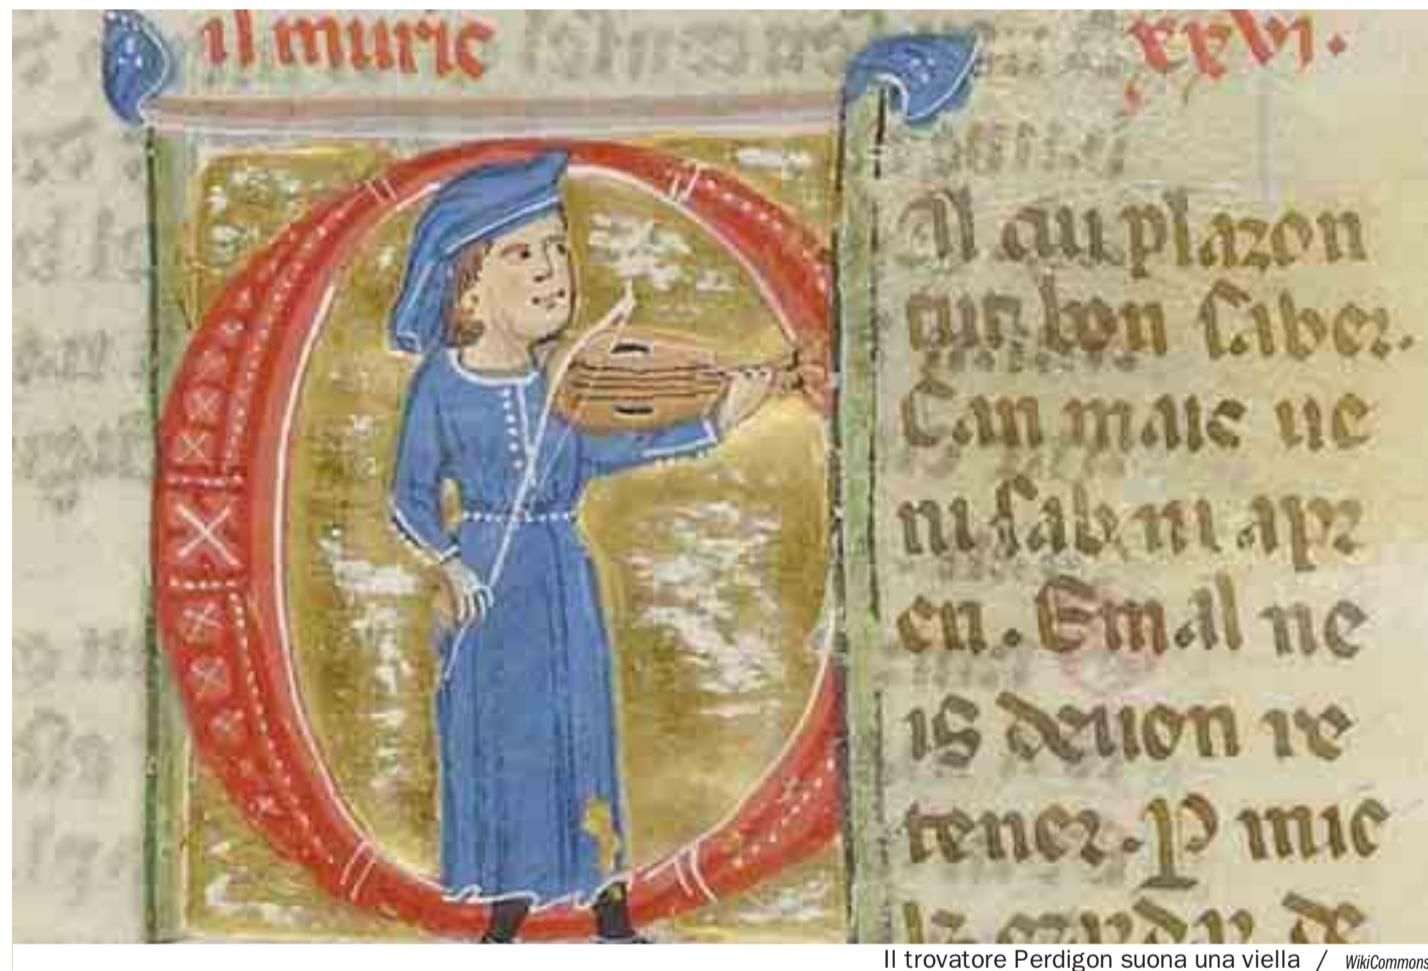 il muric xxvi.
Al au plazon
tut bon ſaber.
Can maic ue
ni ſab ni apr
en. E mal ne
is deuon re
tener. P mic
Il trovatore Perdigon suona una viella / WikiCommons